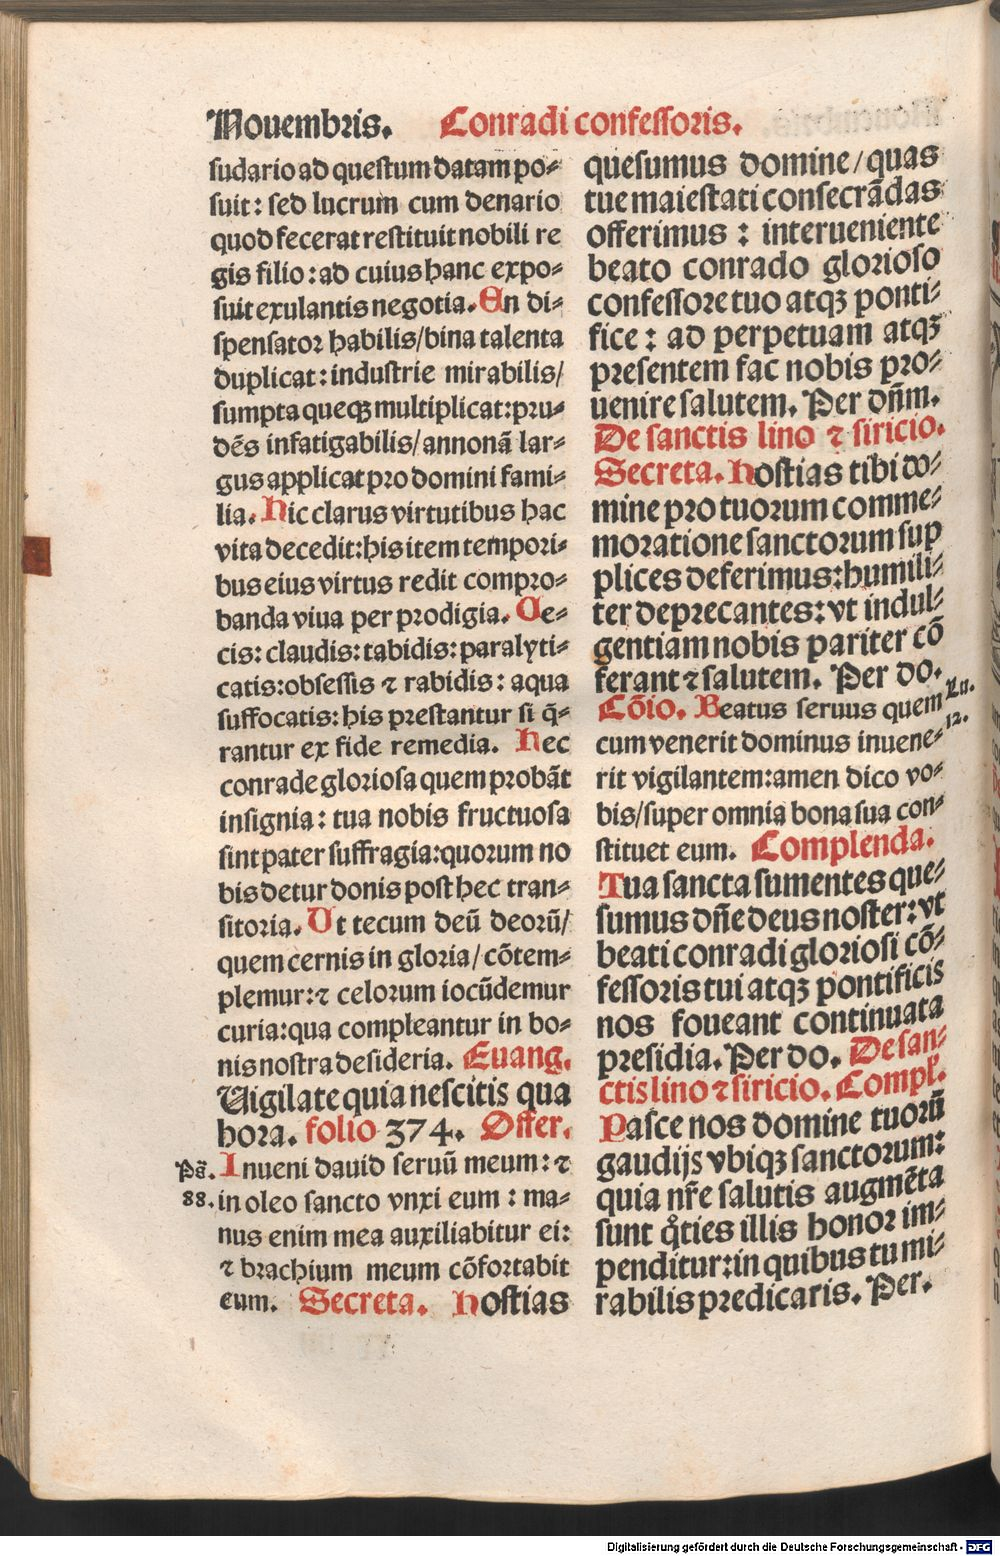 Nouembris. Conradi confessoris.
sudario ad questum datam po⸗
suit: sed lucrum cum denario
quod fecerat restituit nobili re
gis filio: ad cuius hanc expo⸗
suit exulantis negotia. En di⸗
spensator habilis/bina talenta
duplicat: industrie mirabilis/
sumpta queqꝫ multiplicat: pru⸗
dēs infatigabilis/annonā lar⸗
gus applicat pro domini fami⸗
lia. Hic clarus virtutibus hac
vita decedit: his item tempori⸗
bus eius virtus redit compro⸗
banda viua per prodigia. Ce⸗
cis: claudis: tabidis: paralyti⸗
catis: obsessis ⁊ rabidis: aqua
suffocatis: his prestantur si q̄⸗
rantur ex fide remedia. Hec
conrade gloriosa quem probāt
insignia: tua nobis fructuosa
sint pater suffragia: quorum no
bis detur donis post hec tran⸗
sitoria. Ut tecum deū deorū/
quem cernis in gloria/cōtem⸗
plemur: ⁊ celorum iocūdemur
curia: qua compleantur in bo⸗
nis nostra desideria. Euang.
Uigilate quia nescitis qua
hora. folio 374. Offer.
Pā. Inueni dauid seruū meum: ⁊
88. in oleo sancto vnxi eum: ma⸗
nus enim mea auxiliabitur ei:
⁊ brachium meum cōfortabit
eum. Secreta. Hostias
quesumus domine/quas
tue maiestati consecrādas
offerimus: interueniente
beato conrado glorioso
confessore tuo atqꝫ ponti⸗
fice: ad perpetuam atqꝫ
presentem fac nobis pro⸗
uenire salutem. Per dn̄m.
De sanctis lino ⁊ siricio.
Secreta. Hostias tibi do⸗
mine pro tuorum comme⸗
moratione sanctorum sup
plices deferimus: humili⸗
ter deprecantes: vt indul⸗
gentiam nobis pariter cō
ferant ⁊ salutem. Per do.
Cōio. Beatus seruus quem Lu.
cum venerit dominus inuene⸗ 12.
rit vigilantem: amen dico vo⸗
bis/super omnia bona sua con⸗
stituet eum. Complenda.
Tua sancta sumentes que⸗
sumus dn̄e deus noster: vt
beati conradi gloriosi cō⸗
fessoris tui atqꝫ pontificis
nos foueant continuata
presidia. Per do. De san⸗
ctis lino ⁊ siricio. Compl.
Pasce nos domine tuorū
gaudijs vbiqꝫ sanctorum:
quia nr̄e salutis augmēta
sunt qͦties illis honor im⸗
penditur: in quibus tu mi⸗
rabilis predicaris. Per.
Digitalisierung gefördert durch die Deutsche Forschungsgemeinschaft - DFG